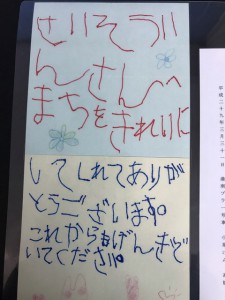 せいそういんさんへ
まちをきれいに
してくれてありが
とうございます。
これからもげんきで
いてください。
平成二十九年三月三十一日